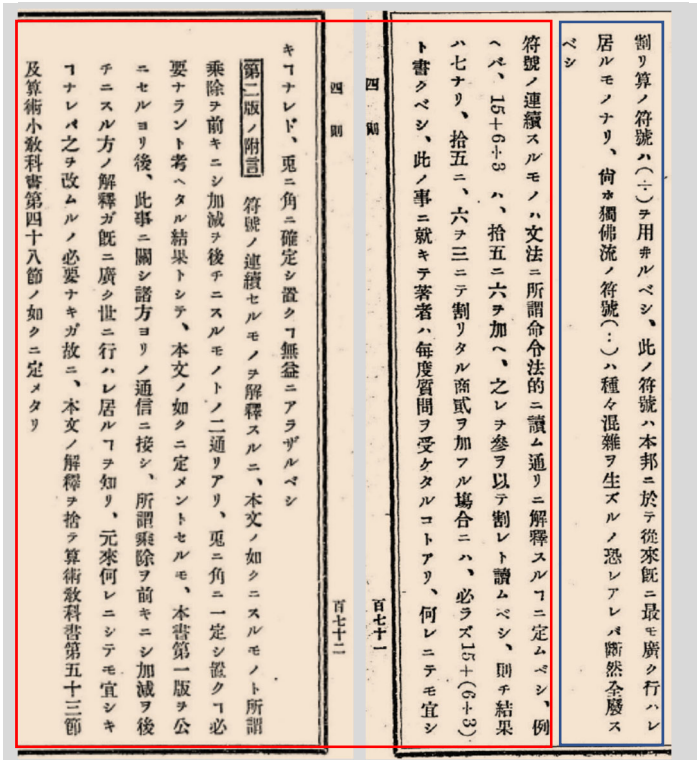 割リ算ノ符號ハ(÷)ヲ用ヰルベシ、此ノ符號ハ本邦ニ於テ從來既ニ最モ廣ク行ハレ
居ルモノナリ、尙ホ獨佛流ノ符號(:)ハ種々混雜ヲ生ズルノ恐レアレバ斷然全廢ス
ベシ
符號ノ連續スルモノハ文法ニ所謂命令法的ニ讀ム通リニ解釋スルヿニ定ムベシ、例
ヘバ、15+6÷3 ハ、拾五ニ六ヲ加ヘ、之レヲ參ヲ以テ割レト讀ムベシ、則チ結果
ハ七ナリ、拾五ニ、六ヲ三ニテ割リタル商貳ヲ加フル塲合ニハ、必ラズ15+(6÷3)
ト書クベシ、此ノ事ニ就キテ著者ハ每度質問ヲ受ケタルコトアリ、何レニテモ宜シ
四則
百七十一
四則
百七十二
キヿナレド、兎ニ角ニ確定シ置クヿ無益ニアラザルベシ
第二版ノ附言 符號ノ連續セルモノヲ解釋スルニ、本文ノ如クニスルモノト所謂
乘除ヲ前キニシ加減ヲ後チニスルモノトノ二通リアリ、兎ニ角ニ一定シ置クヿ必
要ナラント考ヘタル結果トシテ、本文ノ如クニ定メントセルモ、本書第一版ヲ公
ニセルヨリ後、此事ニ關シ諸方ヨリノ通信ニ接シ、所謂乘除ヲ前キニシ加減ヲ後
チニスル方ノ解釋ガ既ニ廣ク世ニ行ハレ居ルヿヲ知リ、元來何レニシテモ宜シキ
ヿナレバ之ヲ改ムルノ必要ナキガ故ニ、本文ノ解釋ヲ捨テ算術敎科書第五十三節
及算術小敎科書第四十八節ノ如クニ定メタリ